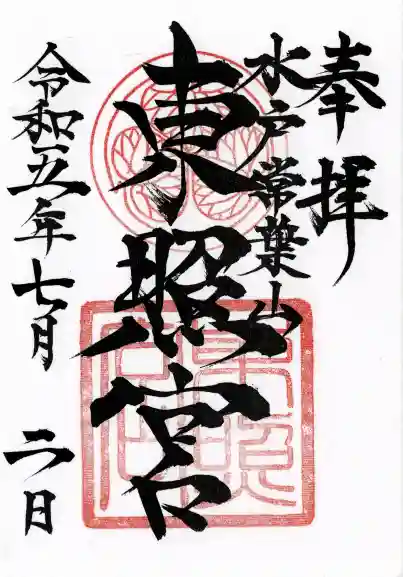 奉拝
水戸常葉山
東照宮
令和五年七月二日
東照宮